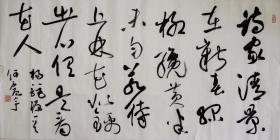 诗家清景
在新春绿
柳才黄半
未匀若待
上林花似锦
出门俱是看
花人